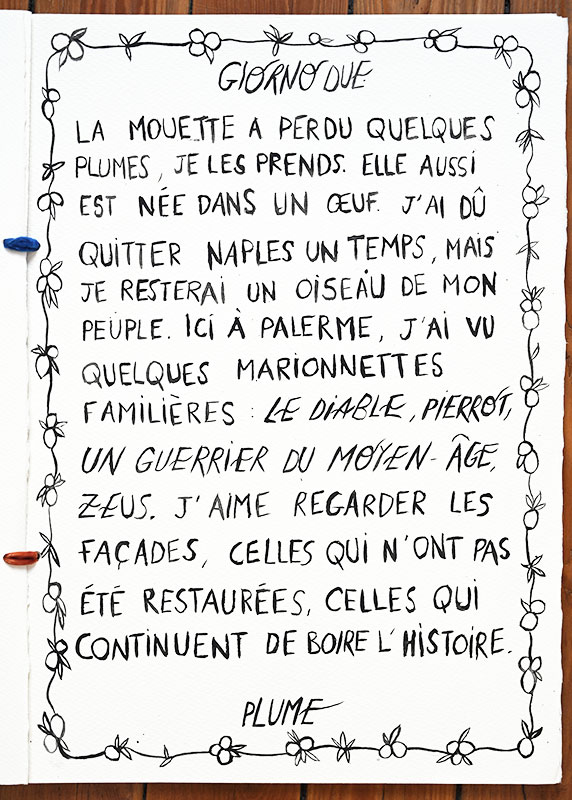 GIORNO DUE
LA MOUETTE A PERDU QUELQUES
PLUMES, JE LES PRENDS. ELLE AUSSI
EST NÉE DANS UN ŒUF. J'AI DÛ
QUITTER NAPLES UN TEMPS, MAIS
JE RESTERAI UN OISEAU DE MON
PEUPLE. ICI À PALERME, J'AI VU
QUELQUES MARIONNETTES
FAMILIÈRES : LE DIABLE, PIERROT,
UN GUERRIER DU MOYEN-ÂGE,
ZEUS. J'AIME REGARDER LES
FAÇADES, CELLES QUI N'ONT PAS
ÉTÉ RESTAURÉES, CELLES QUI
CONTINUENT DE BOIRE L'HISTOIRE.
PLUME